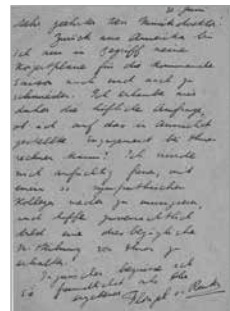 Juni
Sehr geehrter Herr Musikdirektor!
Zurück aus Amerika bin
ich nun im Begriff meine
Konzertpläne für die kommende
Saison auch und auch zu
schmieden. Ich erlaube mir
daher die höfliche Anfrage,
ob ich auf das in Aussicht
gestellte Engagement bei Ihnen
rechnen kann? Ich würde
mich aufrichtig freuen, mit
einem so sympathischen
Kollegen wieder zu musizieren,
und hoffe zuversichtlich
bald eine diesbezügliche
Mitteilung von Ihnen zu
erhalten.
Inzwischen begrüsse ich
Sie freundlichst als Ihr
ergebener